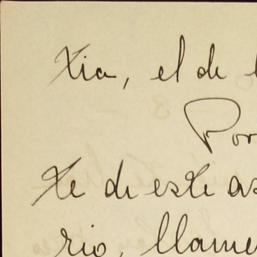 tia, el de
Por
te de este as
rio, llame